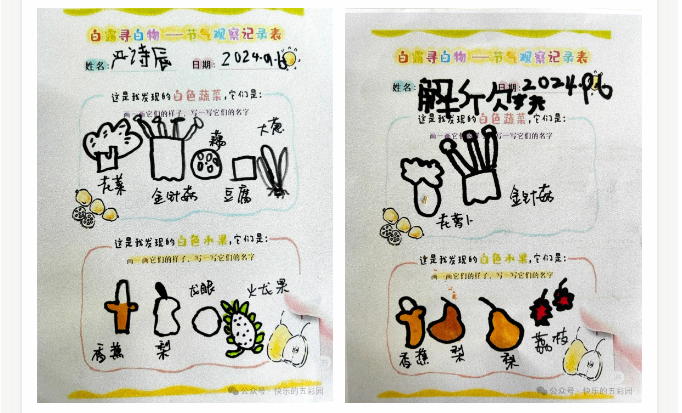 白露寻白物——节气观察记录表
姓名: 严诗辰 日期: 2024.9.6
这是我发现的白色蔬菜,它们是:
画一画它们的样子,写一写它们的名字
藕 大葱
花菜 金针菇 豆腐
这是我发现的白色水果,它们是:
画一画它们的样子,写一写它们的名字
龙眼 火龙果
香蕉 梨
公众号·快乐的五彩园
白露寻白物——节气观察记录表
姓名: 日期: 2024.9.6
这是我发现的白色蔬菜,它们是:
画一画它们的样子,写一写它们的名字
金针菇
花萝卜
这是我发现的白色水果,它们是:
画一画它们的样子,写一写它们的名字
香蕉 梨 梨 荔枝
公众号·快乐的五彩园